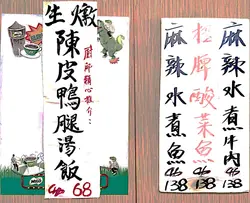 生燉
陳皮鴨腿湯飯
68
廚師精心推介:
麻辣水煮魚
138
招牌酸菜魚
138
麻辣水煮牛肉
138